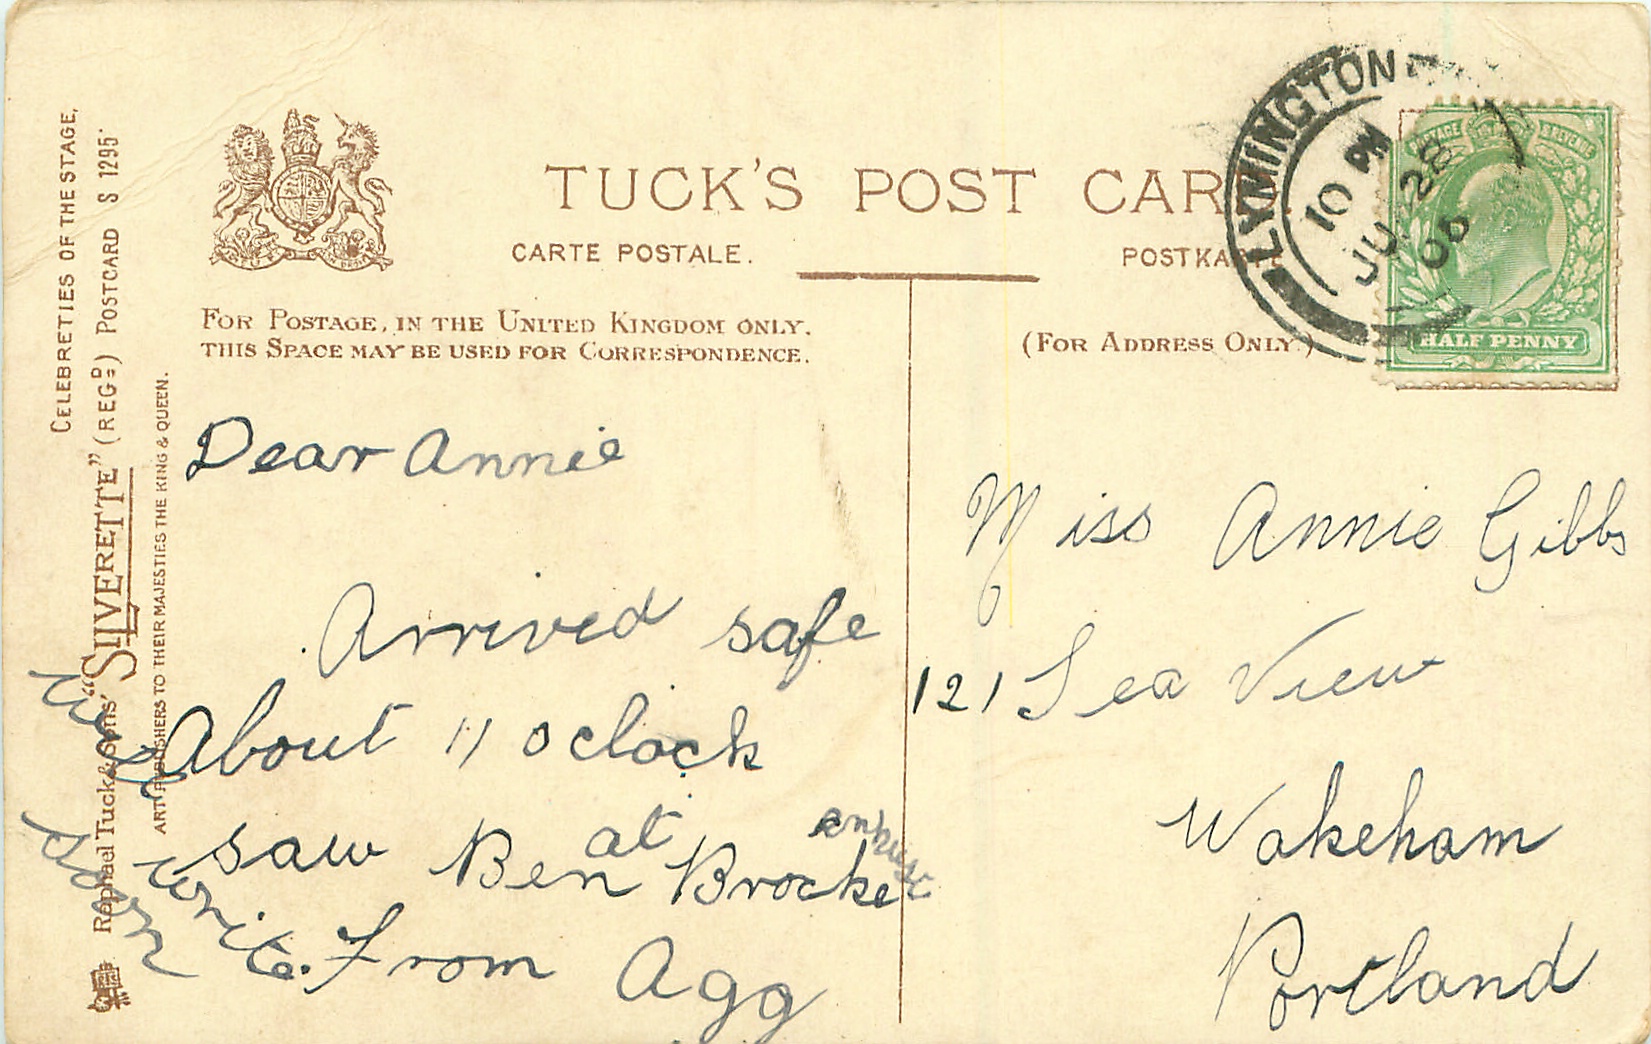 CELEBRETIES OF THE STAGE,
Raphael Tuck & Sons' "SILVERETTE" (REGD) POSTCARD S 1295.
ART PUBLISHERS TO THEIR MAJESTIES THE KING & QUEEN.
TUCK'S POST CAR
CARTE POSTALE.
POSTKA
FOR POSTAGE, IN THE UNITED KINGDOM ONLY.
THIS SPACE MAY BE USED FOR CORRESPONDENCE.
(FOR ADDRESS ONLY.)
LYMINGTON
10 PM
JU 28
06
POSTAGE & REVENUE
HALF PENNY
Dear Annie
Arrived safe
About 11 oclock
saw Ben at Brockenhurst
From Agg
will write
soon
Miss Annie Gibbs
121 Sea View
Wakeham
Portland